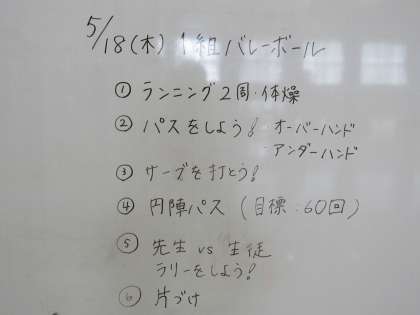 5/18(木) 1組 バレーボール
① ランニング2周・体操
② パスをしよう! オーバーハンド
アンダーハンド
③ サーブを打とう!
④ 円陣パス (目標:60回)
⑤ 先生 vs 生徒
ラリーをしよう!
⑥ 片づけ